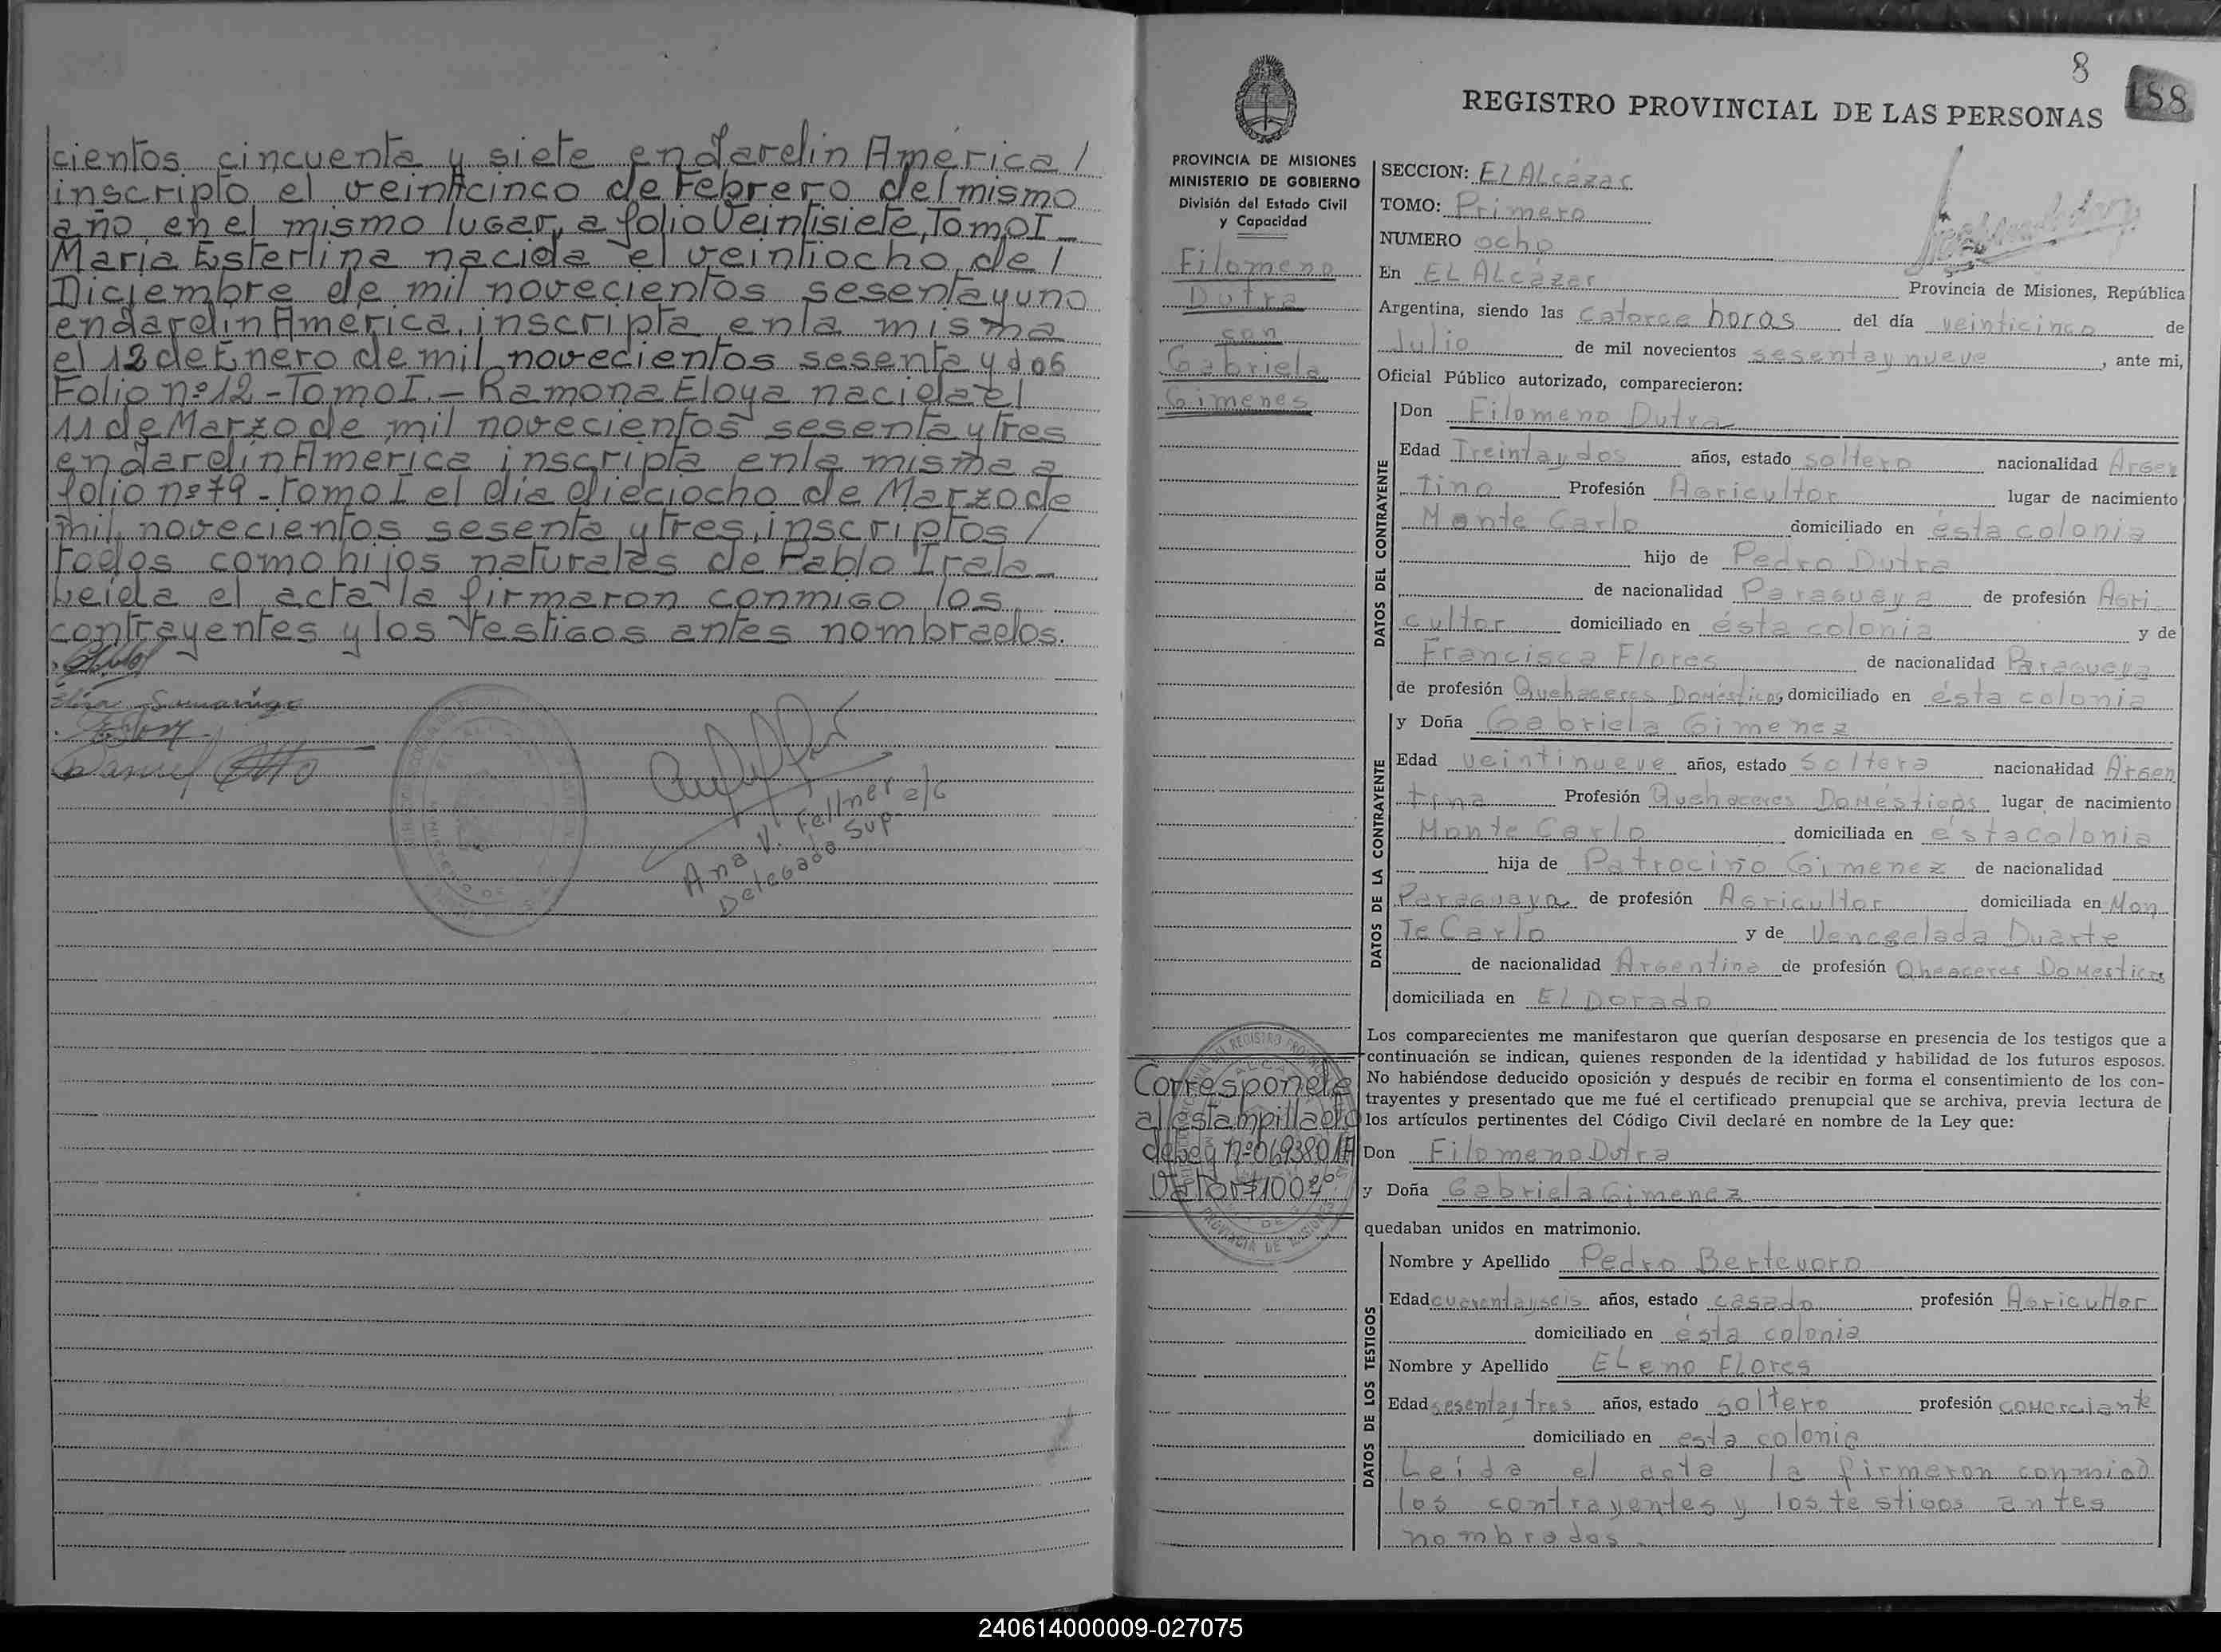 cientos cincuenta y siete en Jardin América /
inscripto el veinticinco de Febrero del mismo
año en el mismo lugar, a folio Veintisiete, Tomo I_
Maria Esterlina nacida el veintiocho de /
Diciembre de mil novecientos sesenta y uno
en Jardin America, inscripta en la misma
el 12 de Enero de mil novecientos sesenta y dos
Folio nº 12 - Tomo I. - Ramona Eloya nacida el
11 de Marzo de mil novecientos sesenta y tres
en Jardin America inscripta en la misma a
folio nº 79 - Tomo I el día dieciocho de Marzo de
mil novecientos sesenta y tres, inscriptos /
todos como hijos naturales de Pablo Irala_
Leida el acta la firmaron conmigo los
contrayentes y los testigos antes nombrados.
Ana V. Fellner a/c
Delegada Sup
8
158
REGISTRO PROVINCIAL DE LAS PERSONAS
PROVINCIA DE MISIONES
MINISTERIO DE GOBIERNO
División del Estado Civil
y Capacidad
Filomeno
Dutra
con
Gabriela
Gimenes
SECCION: El Alcázar
TOMO: Primero
NUMERO ocho
En El Alcázar Provincia de Misiones, República
Argentina, siendo las catorce horas del día veinticinco de
Julio de mil novecientos sesenta y nueve, ante mi,
Oficial Público autorizado, comparecieron:
DATOS DEL CONTRAYENTE
Don Filomeno Dutra
Edad Treinta y dos años, estado soltero nacionalidad Argen
tino Profesión Agricultor lugar de nacimiento
Monte Carlo domiciliado en ésta colonia
hijo de Pedro Dutra
de nacionalidad Paraguaya de profesión Agri
cultor domiciliado en ésta colonia y de
Francisca Flores de nacionalidad Paraguaya
de profesión Quehaceres Domésticos, domiciliado en ésta colonia
DATOS DE LA CONTRAYENTE
y Doña Gabriela Gimenez
Edad veintinueve años, estado Soltera nacionalidad Argen
tina Profesión Quehaceres Domésticos lugar de nacimiento
Monte Carlo domiciliada en ésta colonia
hija de Patrociño Gimenez de nacionalidad
Paraguaya de profesión Agricultor domiciliada en Mon
Te Carlo y de Venceelada Duarte
de nacionalidad Argentina de profesión Qheaceres Domesticos
domiciliada en El Dorado
Los comparecientes me manifestaron que querían desposarse en presencia de los testigos que a
continuación se indican, quienes responden de la identidad y habilidad de los futuros esposos.
No habiéndose deducido oposición y después de recibir en forma el consentimiento de los con-
trayentes y presentado que me fué el certificado prenupcial que se archiva, previa lectura de
los artículos pertinentes del Código Civil declaré en nombre de la Ley que:
Corresponde
al estampillado
de ley nº 069380/A
Valor $100
Don Filomeno Dutra
y Doña Gabriela Gimenez
quedaban unidos en matrimonio.
DATOS DE LOS TESTIGOS
Nombre y Apellido Pedro Bertevoro
Edad cuarenta y seis años, estado casado profesión Agricultor
domiciliado en ésta colonia
Nombre y Apellido Eleno Flores
Edad sesenta y tres años, estado soltero profesión comerciante
domiciliado en esta colonia
Leída el acta la firmeron conmigo
los contrayentes y los testigos antes
nombrados.
240614000009-027075